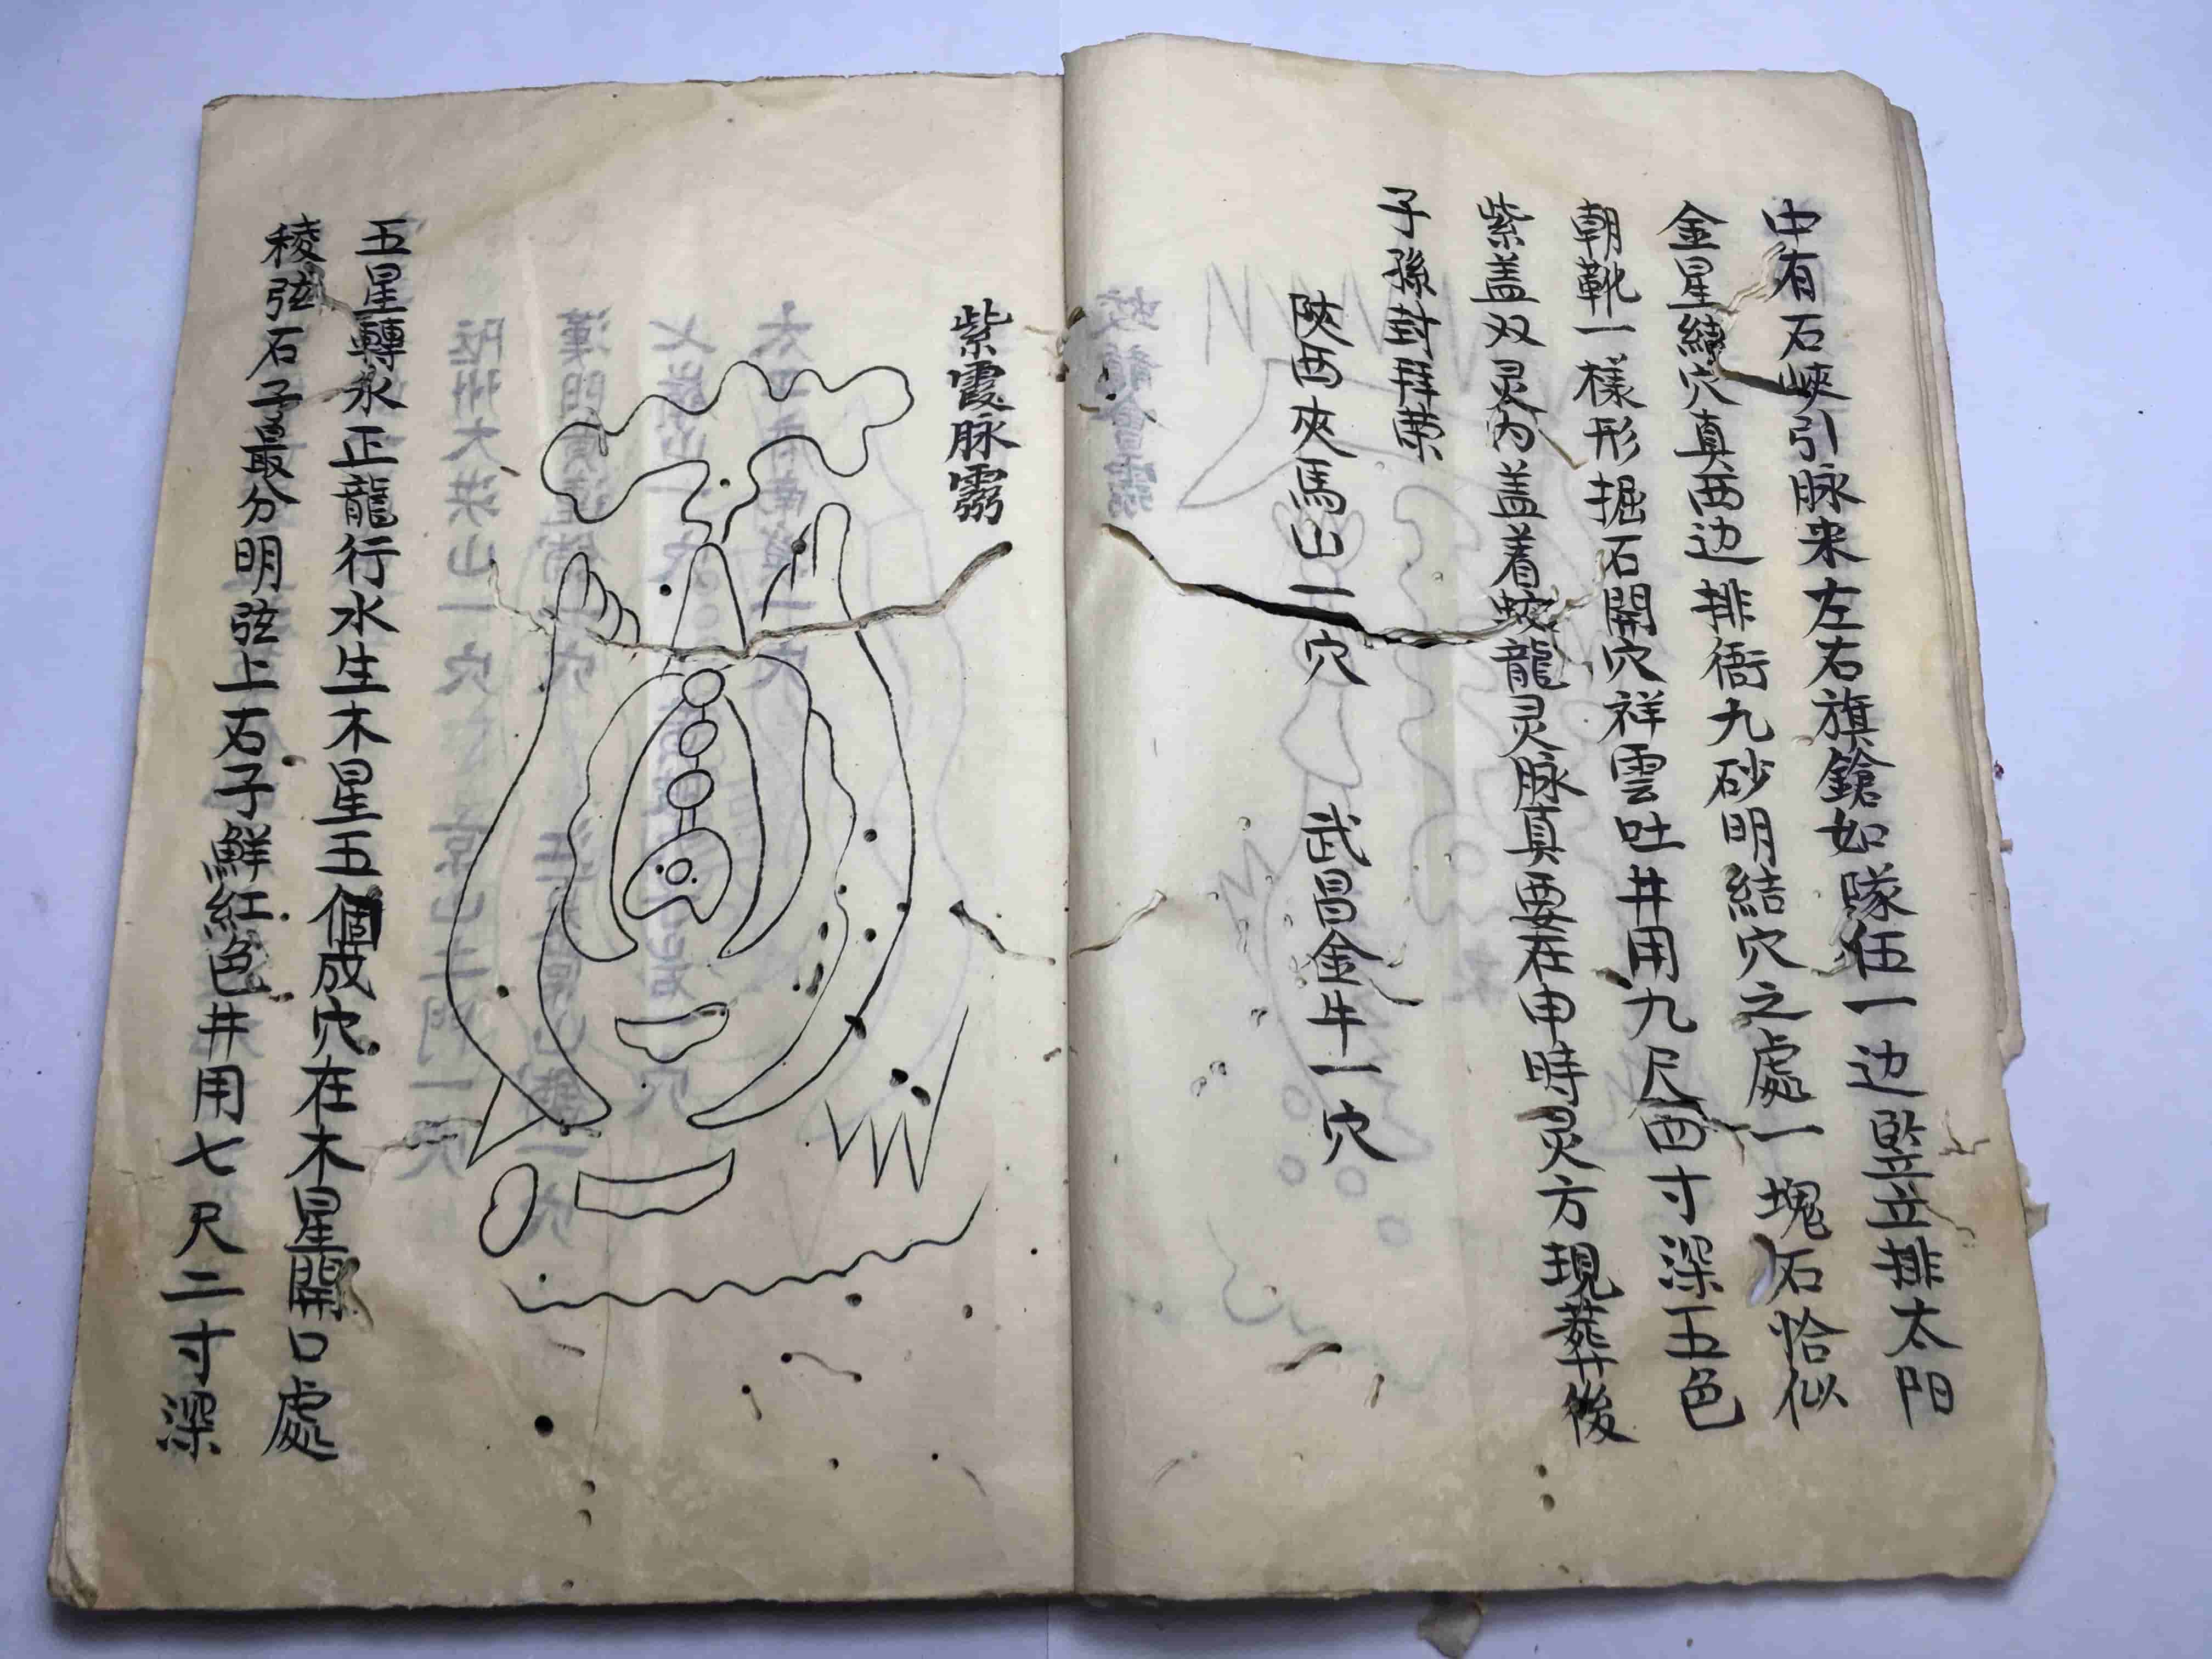 中有石峽引脉来左右旗鎗如隊伍一边竪立排太門
金星繞穴真西边排衙九砂明結穴之處一塊石恰似
朝靴一樣形掘石開穴祥雲吐井用九尺四寸深五色
紫盖双灵内盖着蛟龍灵脉真要在申時灵方現葬後
子孫封拜荣
陝西夾馬山一穴 武昌金牛一穴
紫霞脉
五星轉水正龍行水生木星五個成穴在木星開口處
稜弦石子最分明弦上石子鮮紅色井用七尺二寸深